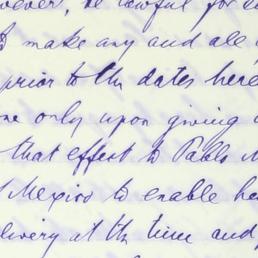 be lawful for
make any and all
prior to the dates here
only upon giving
that effect to Pablo
Mexico to enable he
livery at the time and